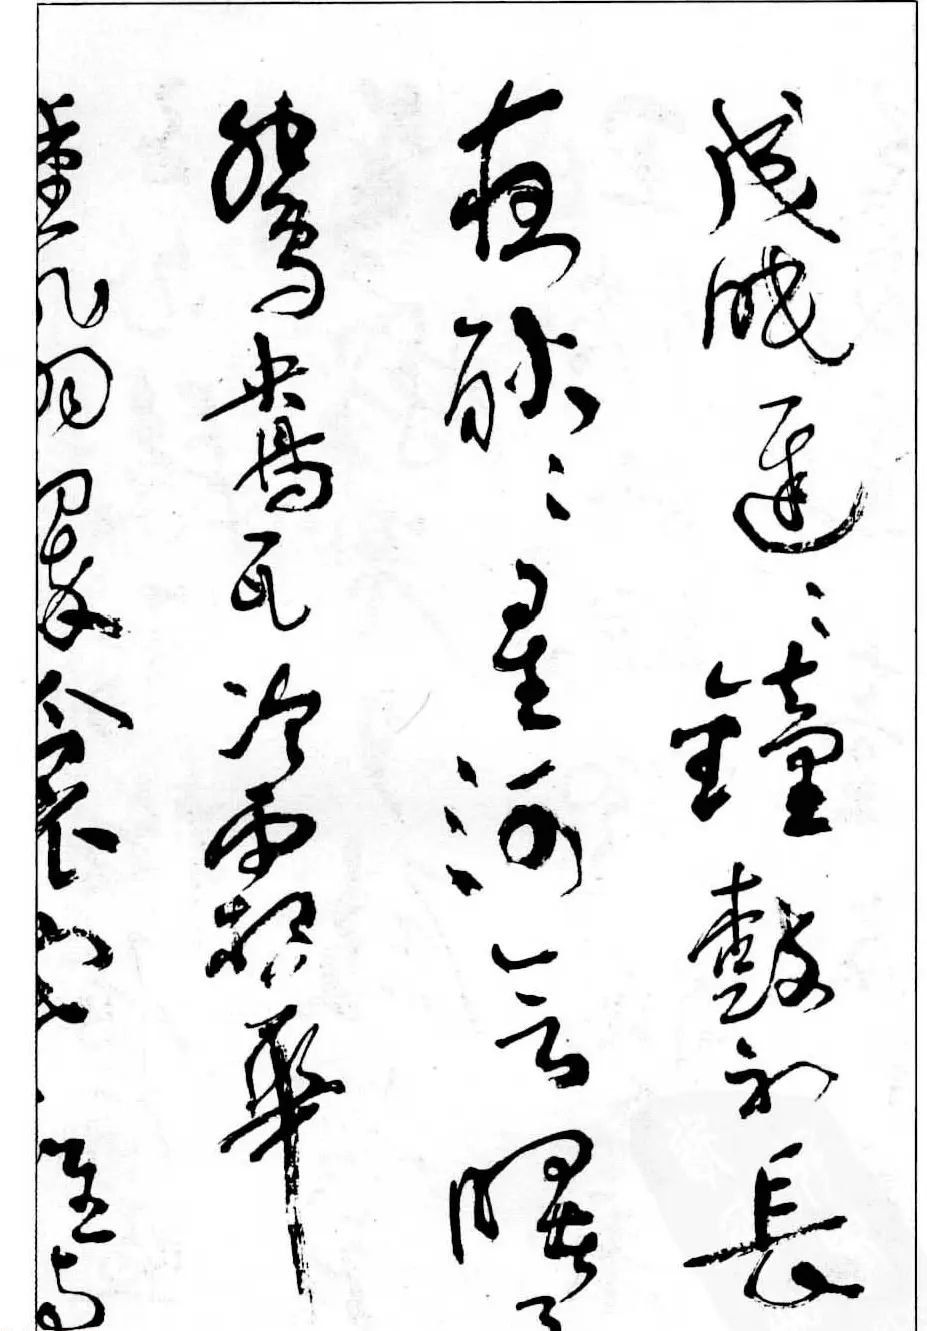 成眠遲々鐘鼓初長
夜耿々星河欲曙
鴛鴦瓦冷霜華
重翡翠衾寒誰與